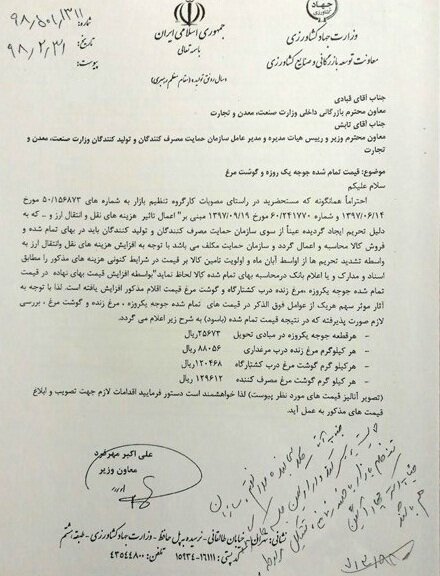 جهاد
کشاورزی
وزارت جهاد کشاورزی
معاونت توسعه بازرگانی و صنایع کشاورزی
جمهوری اسلامی ایران
باسمه تعالی
«سال رونق تولید» (مقام معظم رهبری)
شماره:
تاریخ: ۹۸,۲,۳۱
پیوست:
جناب آقای قبادی
معاون محترم بازرگانی داخلی وزارت صنعت، معدن و تجارت
جناب آقای تابش
معاون محترم وزیر و رییس هیات مدیره و مدیر عامل سازمان حمایت مصرف کنندگان و تولید کنندگان وزارت صنعت، معدن و
تجارت
موضوع: قیمت تمام شده جوجه یک روزه و گوشت مرغ
سلام علیکم
احتراماً همانگونه که مستحضرید در راستای مصوبات کارگروه تنظیم بازار به شماره های ۵۰/۱۵۶۸۷۳ مورخ
۱۳۹۷/۰۶/۱۴ و شماره ۶۰/۲۴۱۷۷۰ مورخ ۱۳۹۷/۰۹/۱۹ مبنی بر" اعمال تاثیر هزینه های نقل و انتقال ارز و … که به
دلیل تحریم ایجاد گردیده عیناً از سوی سازمان حمایت مصرف کنندگان و تولید کنندگان باید در بهای تمام شده و
فروش کالا محاسبه و اعمال گردد و سازمان حمایت مکلف می باشد با توجه به افزایش هزینه های نقل و انتقال ارز به
واسطه تشدید تحریم ها از اواسط آبان ماه و اولویت تامین کالا بر قیمت در شرایط کنونی هزینه های مذکور را مطابق
اسناد و مدارک و یا اعلام بانک درمحاسبه بهای تمام شده کالا لحاظ نماید"بواسطه افزایش قیمت بهای نهاده در قیمت
تمام شده جوجه یکروزه ،مرغ زنده درب کشتارگاه و گوشت مرغ قیمت اقلام مذکور افزایش یافته است. لذا با توجه به
آثار موثر سهم هریک از عوامل فوق الذکر در قیمت های تمام شده جوجه یکروزه ، مرغ زنده و گوشت مرغ ، بررسی
لازم صورت پذیرفته که در نتیجه قیمت تمام شده (باسود) به شرح زیر اعلام می گردد.
- هرقطعه جوجه یکروزه در مبادی تحویل ۲۵۶۷۳ریال
- هر کیلوگرم مرغ زنده درب مرغداری ۸۸۰۵۶ ریال
- هرکیلو گرم گوشت مرغ درب کشتارگاه ۱۲۰۴۶۸ ریال
- هر کیلو گرم گوشت مرغ مصرف کننده ۱۲۹۶۱۲ ریال
(تصویر آنالیز قیمت های مورد نظر پیوست) لذا خواهشمند است دستور فرمایید اقدامات لازم جهت تصویب و ابلاغ
قیمت های مذکور به عمل آید.
علی اکبر مهرفرد
معاون وزیر
نشانی: تهران - خیابان طالقانی - نرسیده به پل حافظ - وزارت جهاد کشاورزی - طبقه هشتم
کدپستی: ۱۶۱۱۱-۱۵۹۳۴ تلفن: ۴۳۵۴۴۸۰۰